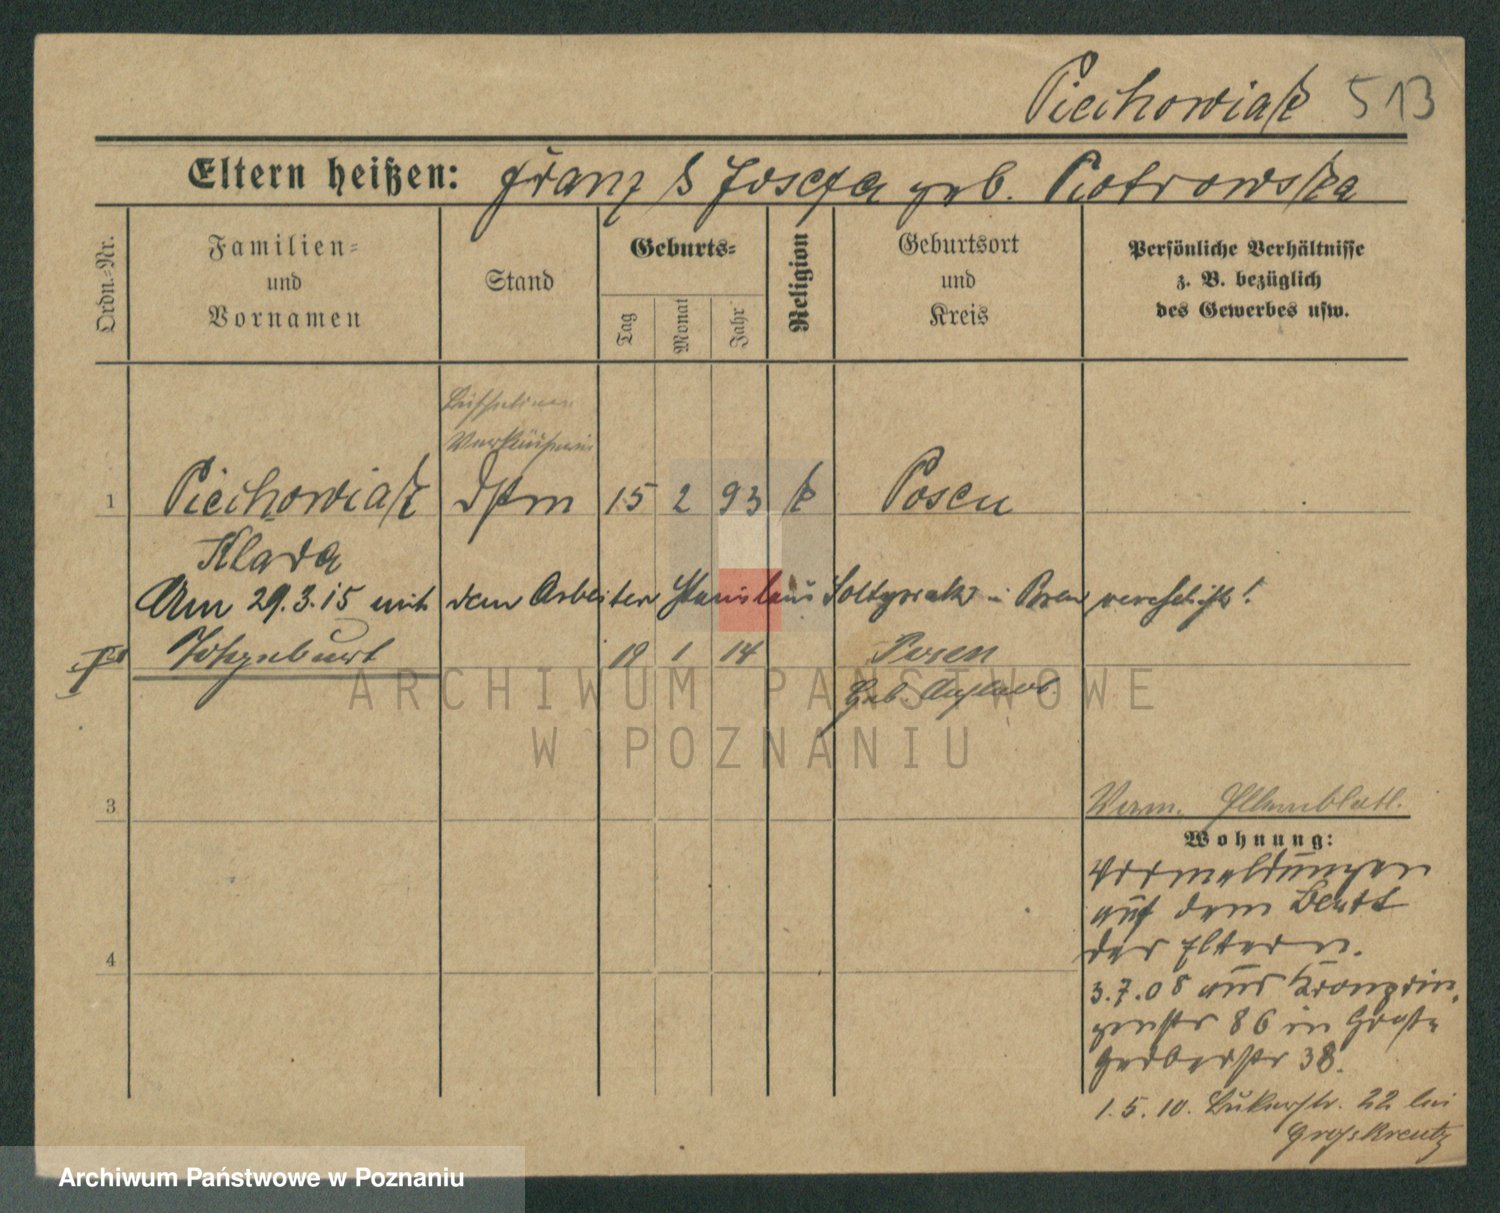 Piechowiak 513
Eltern heißen: Franz & Josefa geb. Piotrowska
Ordn.=Nr.
Familien=
und
Vornamen
Stand
Geburts=
Tag
Monat
Jahr
Religion
Geburtsort
und
Kreis
Persönliche Verhältnisse
z. B. bezüglich
des Gewerbes usw.
Verkäuferin
1 Piechowiak 15 2 93 k Posen
Klara
Am 29.3.15 mit dem Arbeiter Stanislaus Soltysiak in Posen verehelicht!
Totgeburt 19 1 14 Posen
ARCHIWUM PAŃSTWOWE
W POZNANIU
3
Verm. Elternblatt.
Wohnung:
Vormeldungen
auf dem Blatt
der Eltern.
4
3.7.08 aus Kronprin,
zenstr 86 in Große
Gerberstr 38.
1.5.10. 22 bei
Grosskreutz
Archiwum Państwowe w Poznaniu